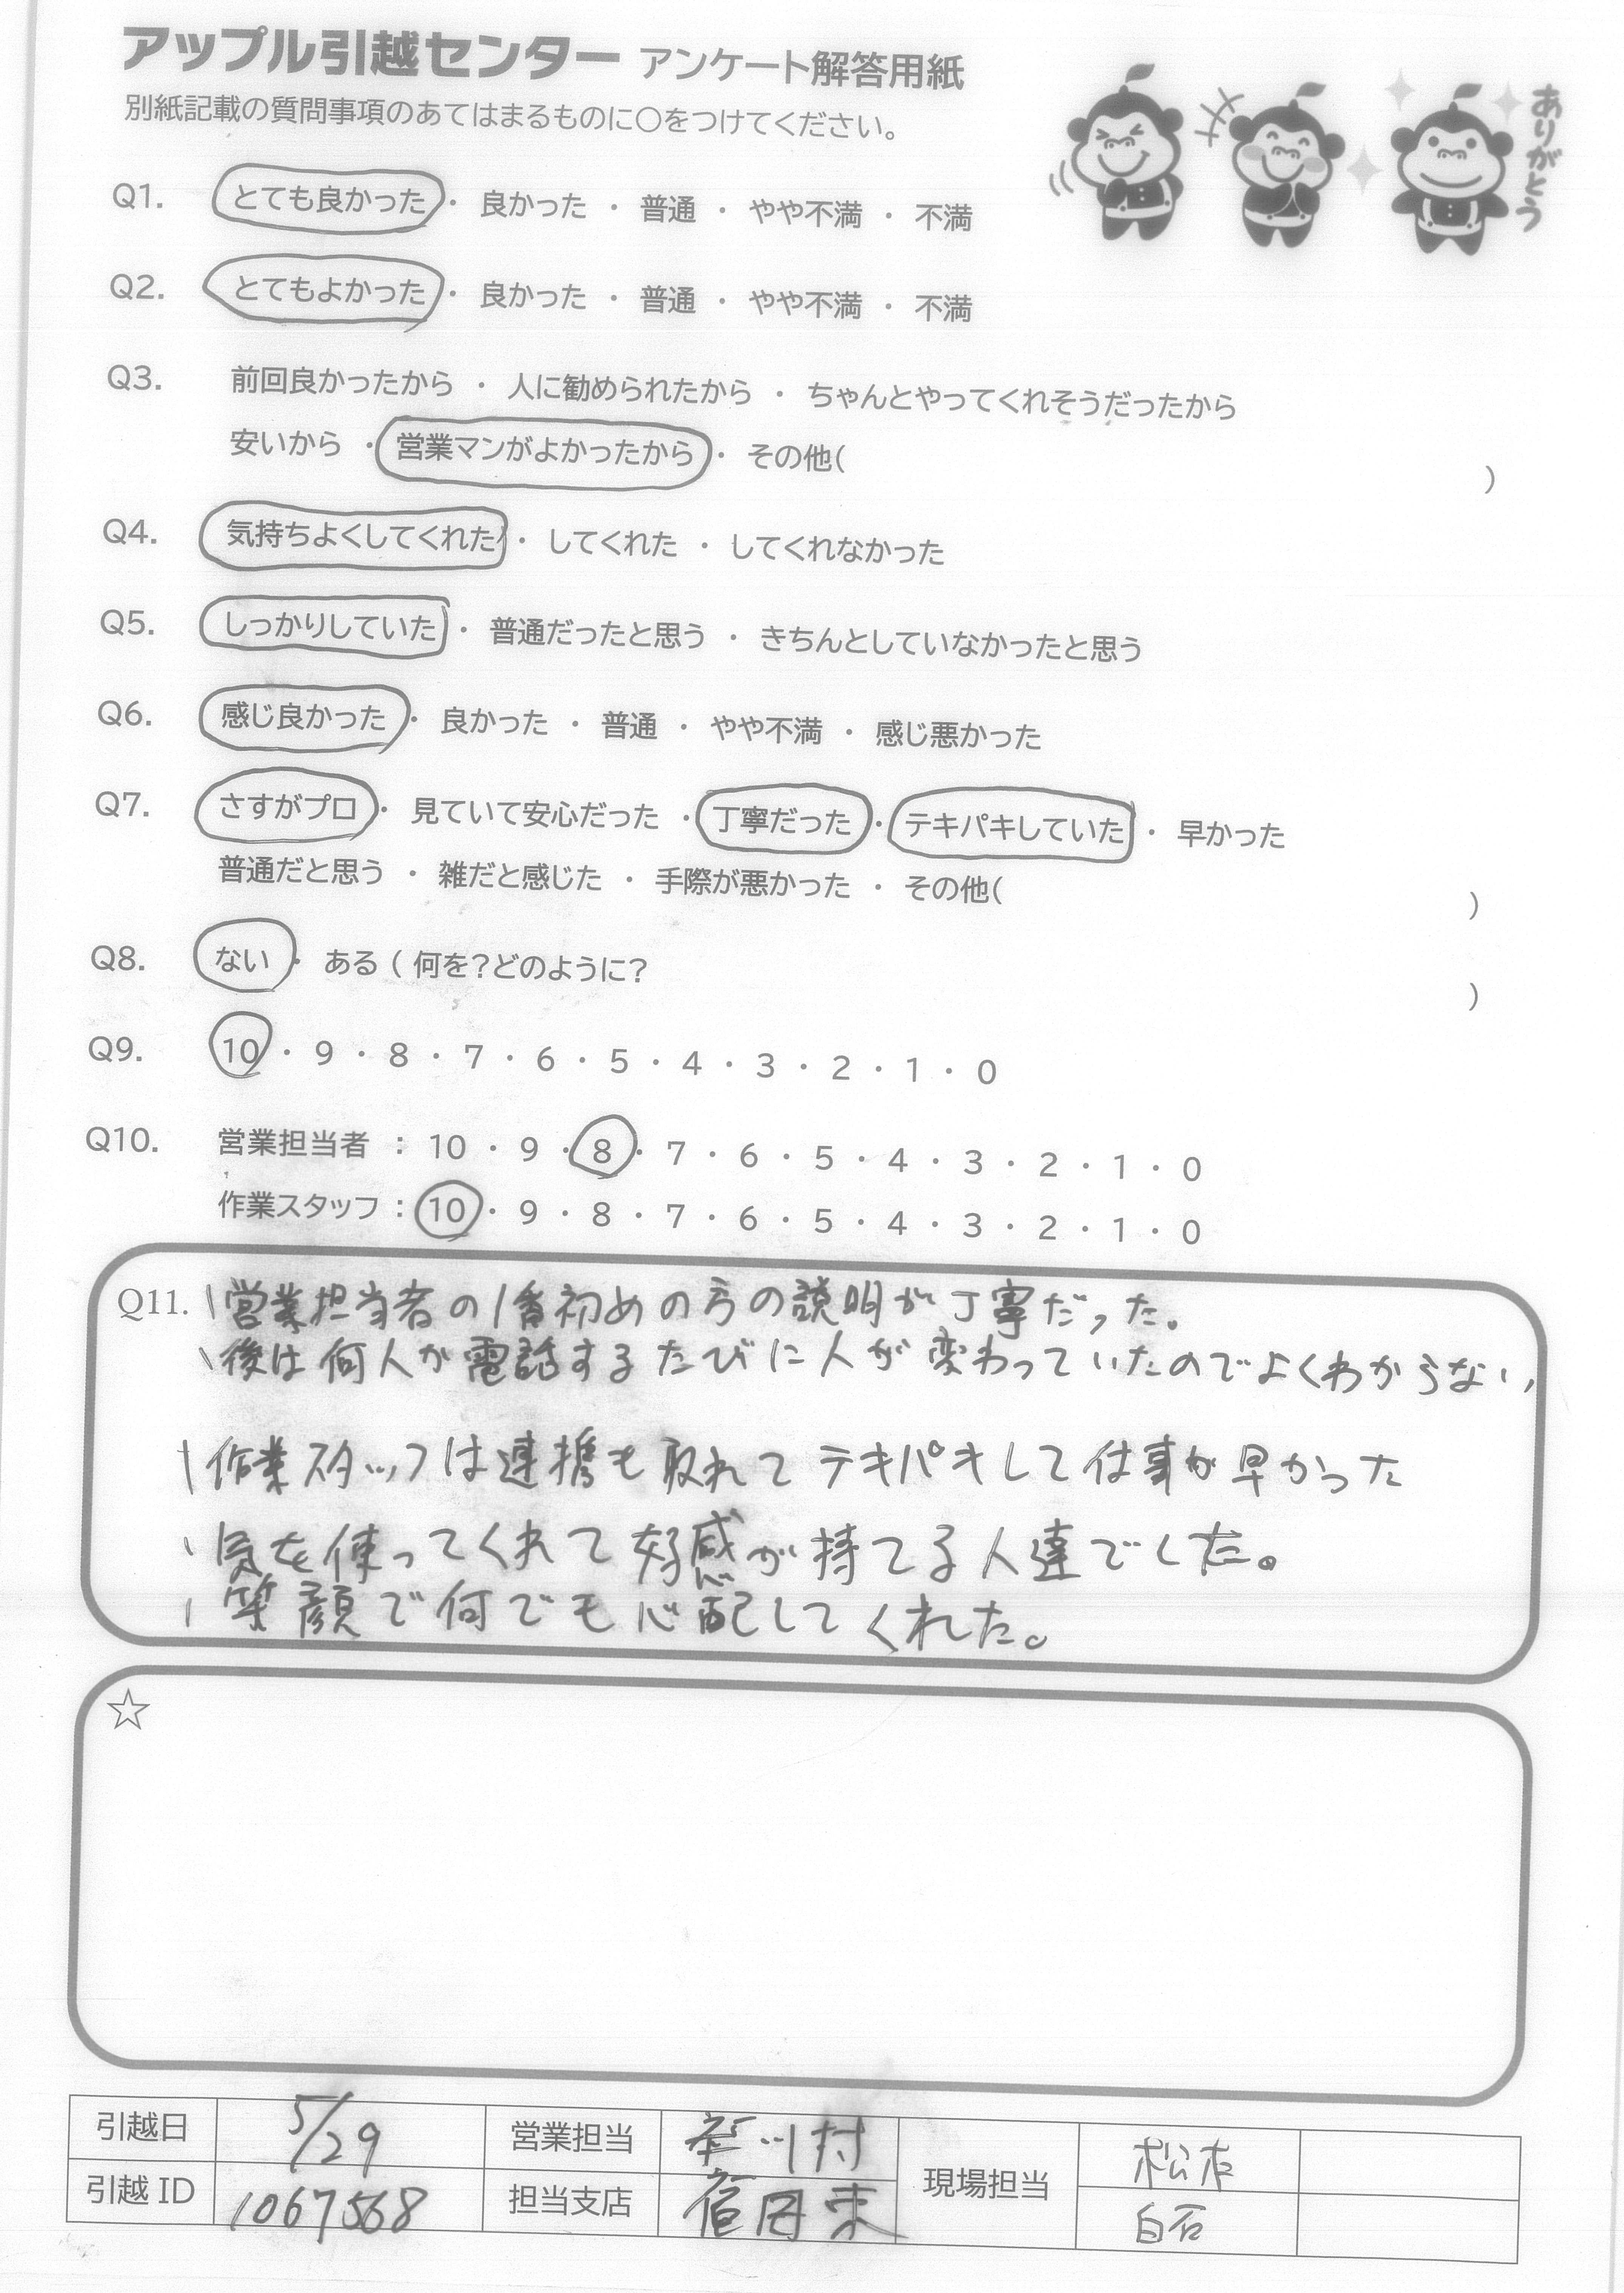 アップル引越センター アンケート解答用紙
別紙記載の質問事項のあてはまるものに○をつけてください。
ありがとう
Q1. とても良かった ・ 良かった ・ 普通 ・ やや不満 ・ 不満
Q2. とてもよかった ・ 良かった ・ 普通 ・ やや不満 ・ 不満
Q3. 前回良かったから ・ 人に勧められたから ・ ちゃんとやってくれそうだったから
安いから ・ 営業マンがよかったから ・ その他( )
Q4. 気持ちよくしてくれた ・ してくれた ・ してくれなかった
Q5. しっかりしていた ・ 普通だったと思う ・ きちんとしていなかったと思う
Q6. 感じ良かった ・ 良かった ・ 普通 ・ やや不満 ・ 感じ悪かった
Q7. さすがプロ ・ 見ていて安心だった ・ 丁寧だった ・ テキパキしていた ・ 早かった
普通だと思う ・ 雑だと感じた ・ 手際が悪かった ・ その他( )
Q8. ない ・ ある ( 何を?どのように? )
Q9. 10 ・ 9 ・ 8 ・ 7 ・ 6 ・ 5 ・ 4 ・ 3 ・ 2 ・ 1 ・ 0
Q10. 営業担当者 : 10 ・ 9 ・ 8 ・ 7 ・ 6 ・ 5 ・ 4 ・ 3 ・ 2 ・ 1 ・ 0
作業スタッフ : 10 ・ 9 ・ 8 ・ 7 ・ 6 ・ 5 ・ 4 ・ 3 ・ 2 ・ 1 ・ 0
Q11. 営業担当者の1番初めの方の説明が丁寧だった。
後は何人か電話するたびに人が変わっていたのでよくわからない
作業スタッフは連携も取れてテキパキして仕事が早かった
気を使ってくれて好感が持てる人達でした。
笑顔で何でも心配してくれた。
☆
引越日 5/29 営業担当 村 現場担当 松本
引越 ID 1067568 担当支店 白石